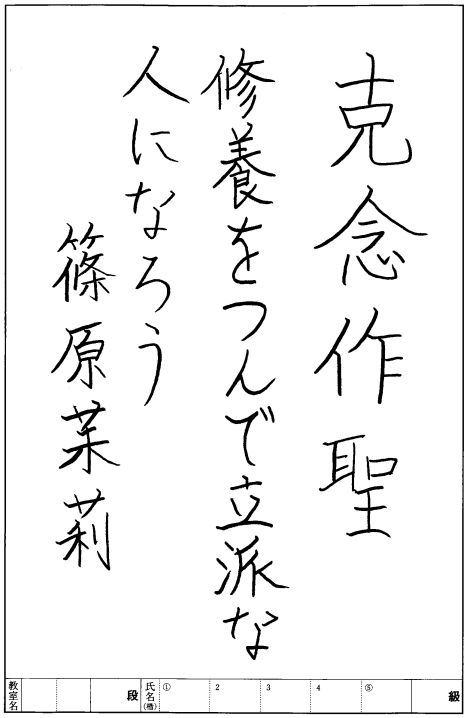 克念作聖
修養をつんで立派な
人になろう
篠原茉莉
教室名 段 氏名(楷) ① 2 3 4 ⑤ 級